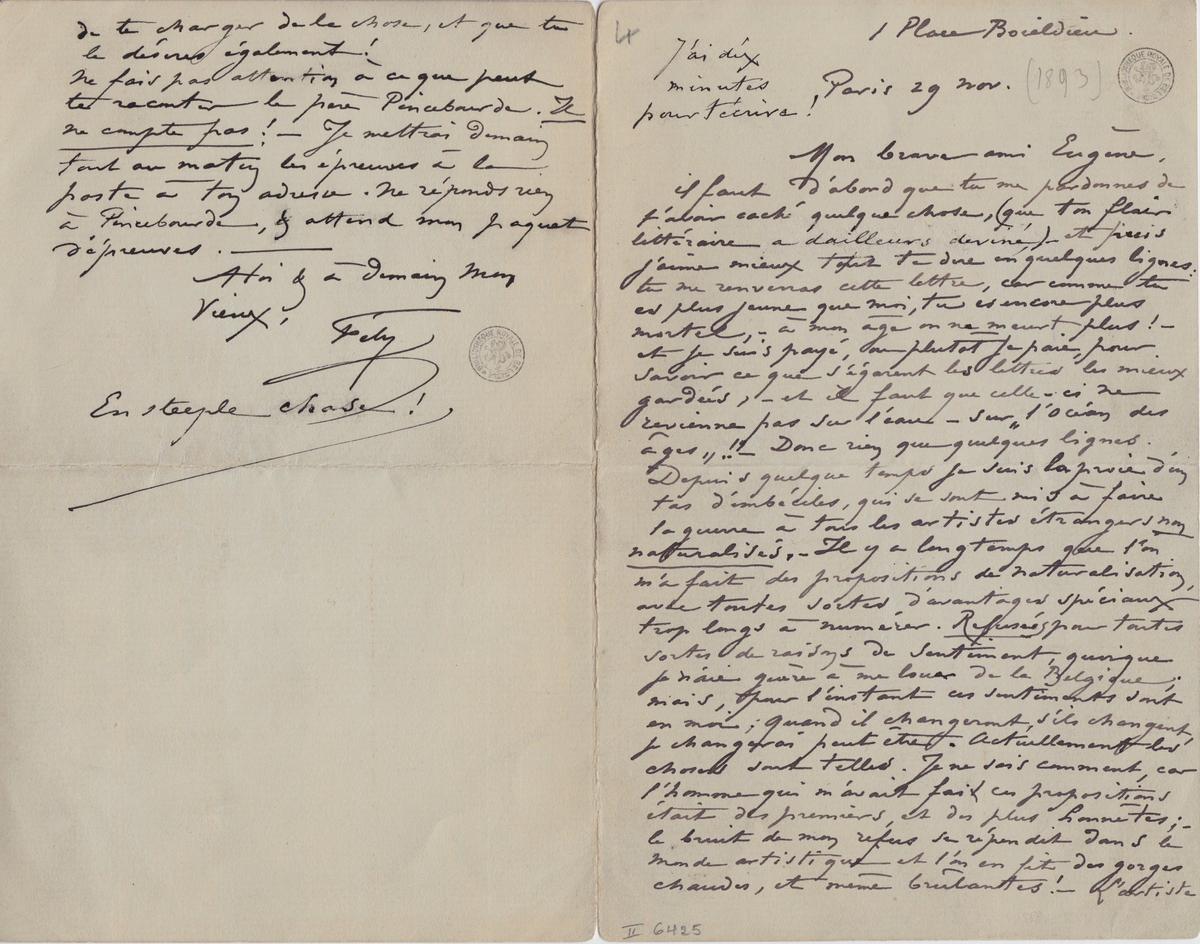 de te charger de la chose, et que tu
le désires également!
Ne fais pas attention à ce que peut
te raconter le père Pincebourde. Il
ne compte pas! – Je mettrai demain
tout au matin les épreuves à la
poste à ton adresse. Ne réponds rien
à Pincebourde, & attend mon paquet
d'épreuves. –
A toi & à demain mon
Vieux,
Fély
En steeple chase!
4
1 Place Boieldieu.
J'ai dix
minutes
pour t'écrire!
Paris 29 nov.
(1893)
Mon brave ami Eugène,
il faut d'abord que tu me pardonnes de
t'avoir caché quelque chose, (que ton flair
littéraire a d'ailleurs deviné) – et puis
j'aime mieux tout te dire en quelques lignes:
tu me renverras cette lettre, car comme tu
es plus jeune que moi, tu es encore plus
mortel, – à mon âge on ne meurt plus! –
et je suis payé, ou plutôt je paie, pour
savoir ce que s'égarent les lettres les mieux
gardées, – et il faut que celle-ci ne
revienne pas sur l'eau – sur „l'Océan des
âges„!! – Donc rien que quelques lignes.
Depuis quelque temps je suis la proie d'un
tas d'imbéciles, qui se sont mis à faire
la guerre à tous les artistes étrangers non
naturalisés, – Il y a longtemps que l'on
m'a fait des propositions de naturalisation,
avec toutes sortes d'avantages spéciaux
trop longs à numérer. Refusées pour toutes
sortes de raisons de sentiment, quoique
je n'aie guère à me louer de la Belgique;
mais, pour l'instant ces sentiments sont
en moi; quand il changeront, s'ils changent,
je changerai peut être. Actuellement les
choses sont telles. Je ne sais comment, car
l'homme qui m'avait fait ces propositions
était des premiers, et des plus honnêtes; –
le bruit de mon refus se répendit dans le
monde artistique et l'on en fit des gorges
chaudes, et même brûlantes! – L'artiste
II 6425